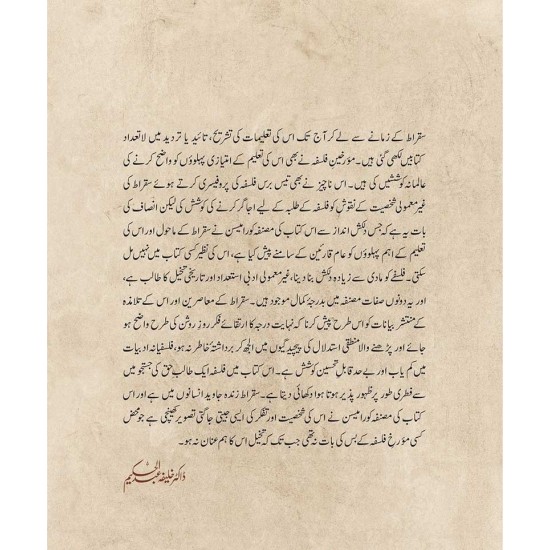 سقراط کے زمانے سے لے کر آج تک اس کی تعلیمات کی تشریح، تائید یا تردید میں لاتعداد
کتابیں لکھی گئی ہیں۔ مؤرخینِ فلسفہ نے بھی اس کی تعلیم کے امتیازی پہلوؤں کو واضح کرنے کی
عالمانہ کوششیں کی ہیں۔ اس ناچیز نے بھی تیس برس فلسفہ کی پروفیسری کرتے ہوئے سقراط کی
غیر معمولی شخصیت کے نقوش کو فلسفہ کے طلبہ کے لیے اجاگر کرنے کی کوشش کی لیکن انصاف کی
بات یہ ہے کہ جس دلکش انداز سے اس کتاب کی مصنفہ کورا میسن نے سقراط کے ماحول اور اس کی
تعلیم کے اہم پہلوؤں کو عام قارئین کے سامنے پیش کیا ہے، اس کی نظیر کسی کتاب میں نہیں مل
سکتی۔ فلسفے کو مادی سے زیادہ دلکش بنا دینا، غیر معمولی ادبی استعداد اور تاریخی تخیل کا طالب ہے،
اور یہ دونوں صفات مصنفہ میں بدرجۂ کمال موجود ہیں۔ سقراط کے معاصرین اور اس کے تلامذہ
کے منتشر بیانات کو اس طرح پیش کرنا کہ نہایت درجہ کا ارتقائے فکر روزِ روشن کی طرح واضح ہو
جائے اور پڑھنے والا منطقی استدلال کی پیچیدگیوں میں الجھ کر برداشتہ خاطر نہ ہو، فلسفیانہ ادبیات
میں کم یاب اور بے حد قابلِ تحسین کوشش ہے۔ اس کتاب میں فلسفہ ایک طالبِ حق کی جستجو میں
سے فطری طور پر ظہور پذیر ہوتا ہوا دکھائی دیتا ہے۔ سقراط زندہ جاوید انسانوں میں ہے اور اس
کتاب کی مصنفہ کورا میسن نے اس کی شخصیت اور تفکر کی ایسی جیتی جاگتی تصویر کھینچی ہے جو محض
کسی مؤرخِ فلسفہ کے بس کی بات نہ تھی جب تک کہ تخیل اس کا ہم عنان نہ ہو۔
ڈاکٹر خلیفہ عبدالحکیم